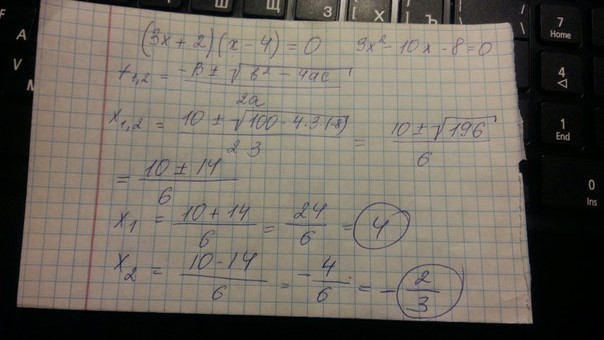 З Ш Щ
А Ъ
V
M
7
Home
4
1
End
0
Ins
(3x+2)(x-4)=0 3x²-10x-8=0
x₁,₂ = (-в ± √(в² - 4ac)) / 2a
x₁,₂ = (10 ± √(100-4·3·(-8))) / 2 3 = (10 ± √196) / 6
= (10 ± 14) / 6
x₁ = (10+14) / 6 = 24/6 = 4
x₂ = (10-14) / 6 = -4/6 = -2/3